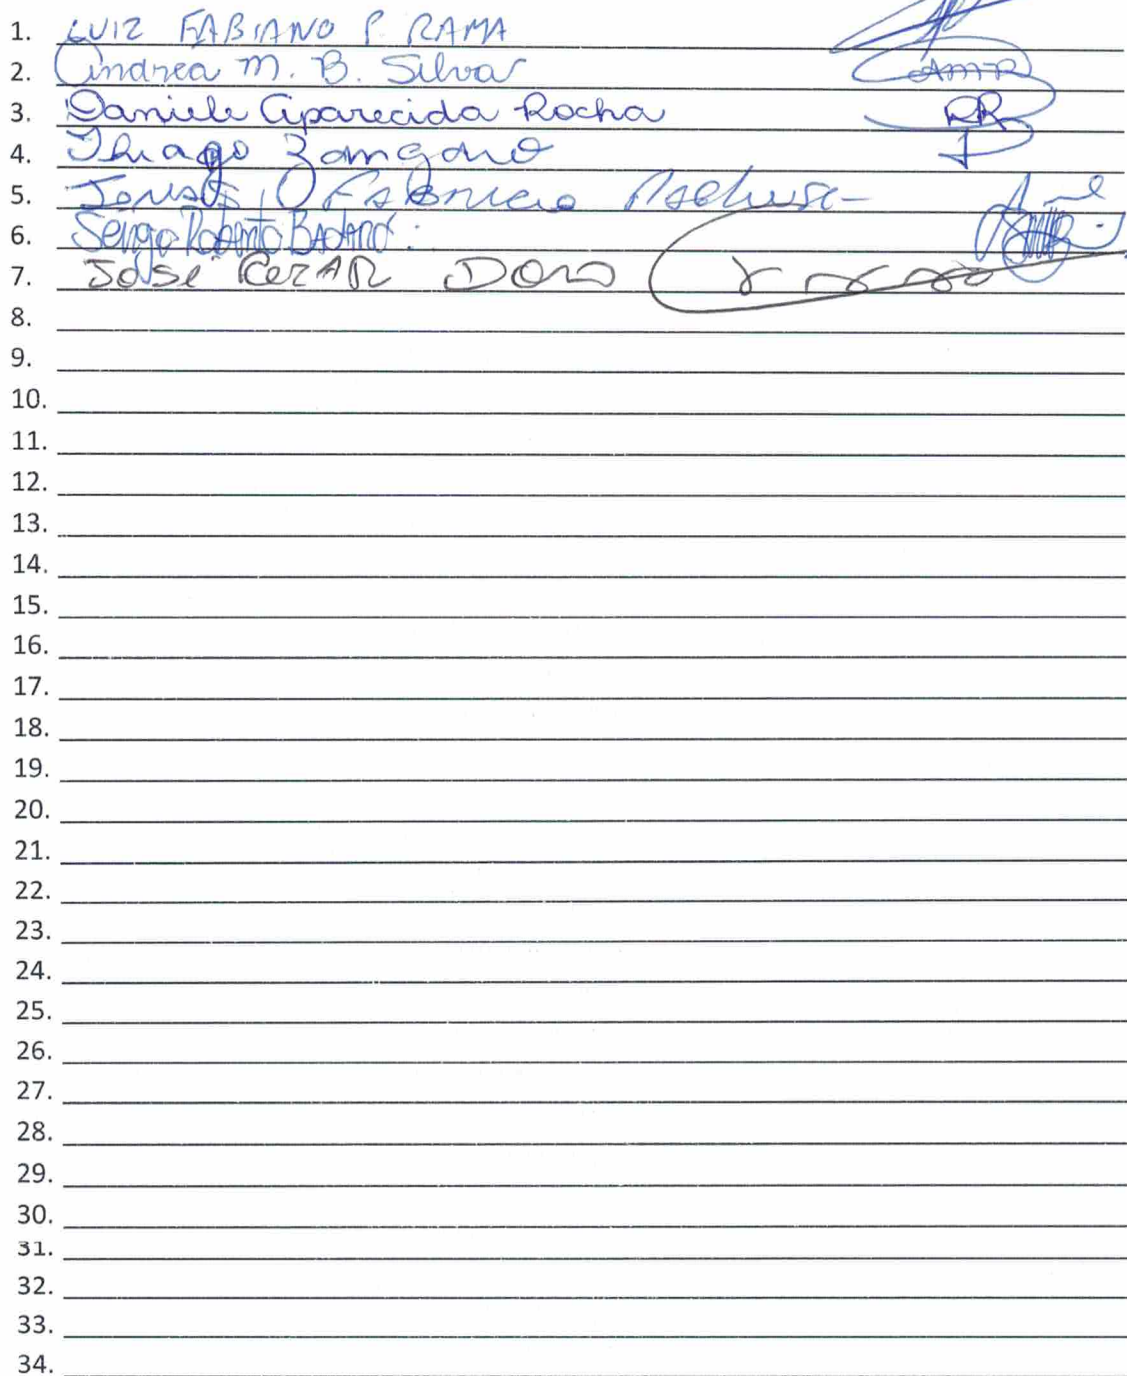 1. LUIZ FABIANO P. RAMA
2. Andrea M. B. Silva AMR
3. Daniele Aparecida Rocha RR
4. Thiago
5. Fabricio
6. Sergio Roberto
7. José CEZAR
8.
9.
10.
11.
12.
13.
14.
15.
16.
17.
18.
19.
20.
21.
22.
23.
24.
25.
26.
27.
28.
29.
30.
31.
32.
33.
34.